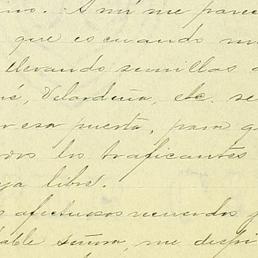 ino. A mí me parec
que es cuando m
llevando semillas a
é, Velardeña, etc. se
r esa puerta, para q
dos los traficantes
ja libre.
s afectuosos recuerdos p
table señora, me despi